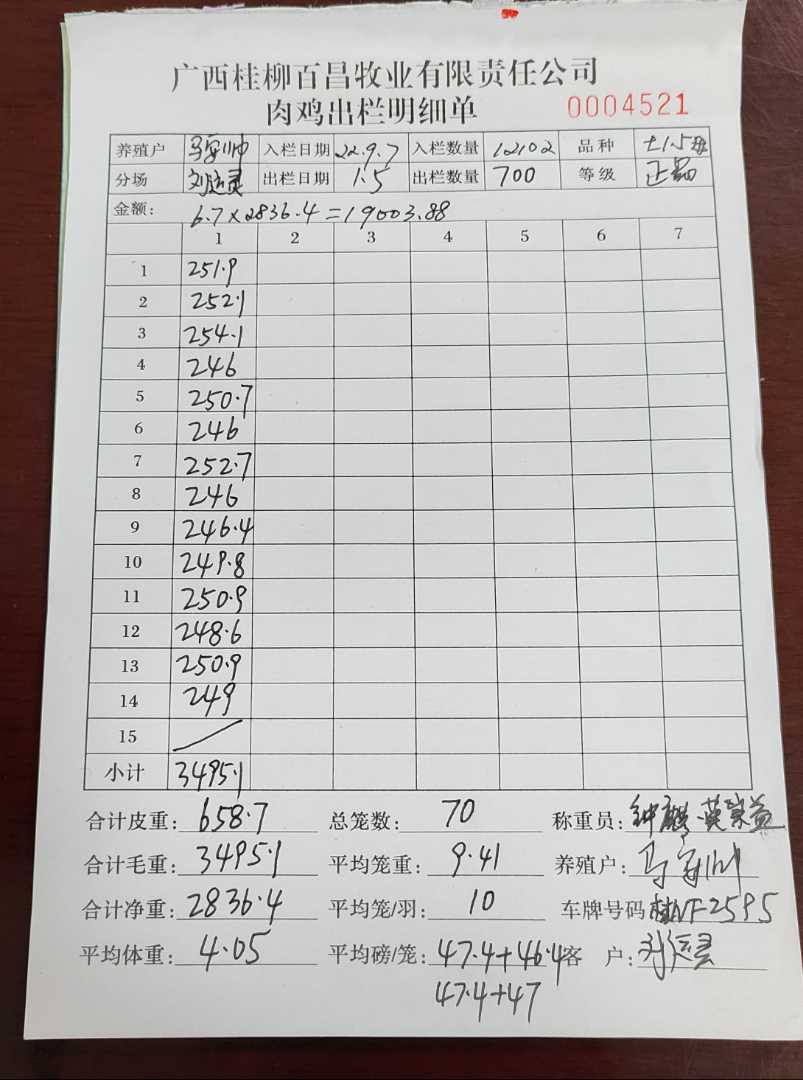 广西桂柳百昌牧业有限责任公司
肉鸡出栏明细单 0004521
养殖户 入栏日期 22.9.7 入栏数量 12102 品种 土1.5母
分场 刘运灵 出栏日期 1.5 出栏数量 700 等级 正品
金额: 6.7×2836.4=19003.88
1 2 3 4 5 6 7
1 251.9
2 252.1
3 254.1
4 246
5 250.7
6 246
7 252.7
8 246
9 246.4
10 249.8
11 250.9
12 248.6
13 250.9
14 249
15
小计 3495.1
合计皮重: 658.7 总笼数: 70 称重员:
合计毛重: 3495.1 平均笼重: 9.41 养殖户:
合计净重: 2836.4 平均笼/羽: 10 车牌号码 桂NF2595
平均体重: 4.05 平均磅/笼: 47.4+46.4 客户: 刘运灵
47.4+47